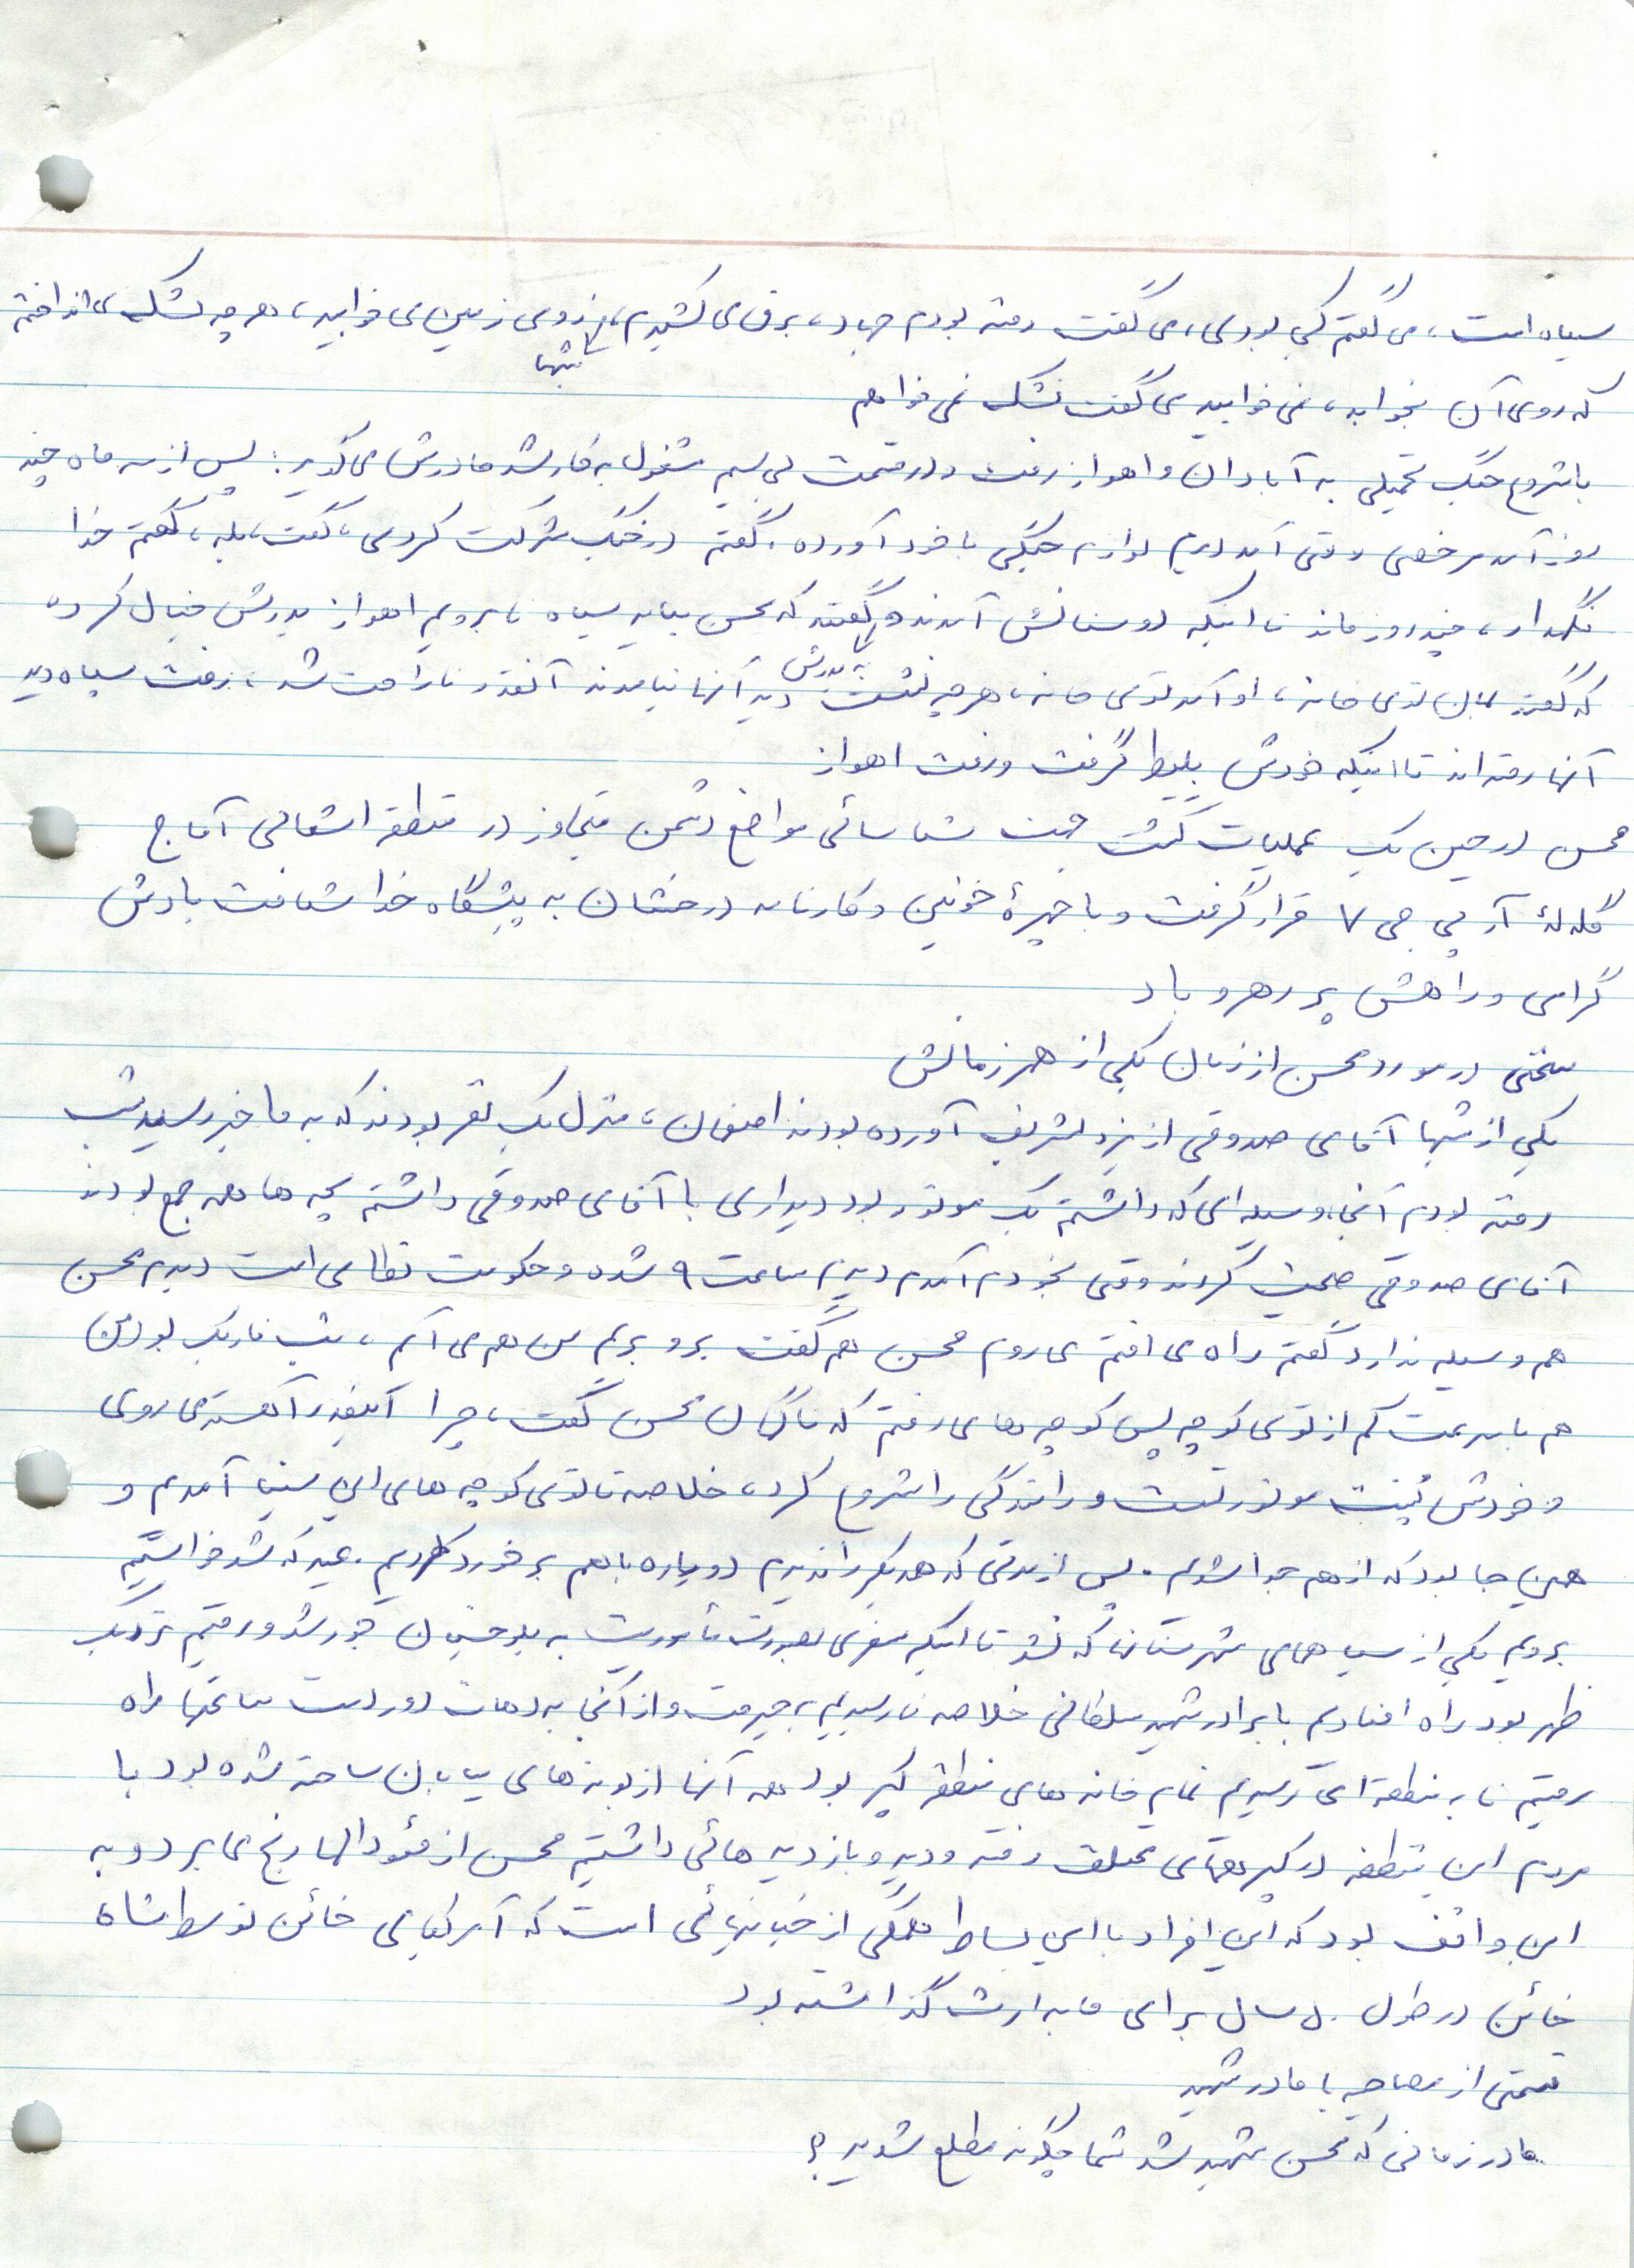 سیاه است، می گفتم کجا بودی، می گفت رفته بودم جهاد، برق می کشیدم، شبها روی زمین می خوابید، هر چه تشک می انداختم
که روی آن بخوابد، نمی خوابید می گفت تشک نمی خواهم
با شروع جنگ تحمیلی به آبادان و اهواز رفت و در قسمت بی سیم مشغول به کار شد مادرش می گوید: پس از سه ماه چند
روز آمد مرخصی وقتی آمد دیدم لوازم جنگی با خود آورده، گفتم در جنگ شرکت کردی، گفت، بله، گفتم خدا
نگهدار، چند روز ماند تا اینکه دوستانش آمدند و گفتند که محسن بیاید سپاه تا برویم اهواز پدرش خیال کرده
که گفتند توی خانه، او آمد توی خانه، هر چه نشست پدرش دید آنها نیامدند آنقدر ناراحت شد، رفت سپاه دید
آنها رفته اند تا اینکه خودش بلیط گرفت و رفت اهواز
محسن در حین یک عملیات گشت جهت شناسائی مواضع دشمن متجاوز در منطقه اشغالی آماج
گلولۀ آر پی جی ۷ قرار گرفت و با چهرۀ خونین و کارنامه درخشان به پیشگاه خدا شتافت یادش
گرامی و راهش پر رهرو باد
سخنی در مورد محسن از زبان یکی از همرزمانش
یکی از شبها آقای صدوقی از یزد تشریف آورده بودند اصفهان، منزل یک نفر بودند که به ما خبر رسید شب
رفته بودم آنجا، وسیله ای که داشتم یک موتور بود دیداری با آقای صدوقی داشتم بچه ها همه جمع بودند
آقای صدوقی صحبت کردند وقتی بخودم آمدم دیدم ساعت ۹ شده و حکومت نظامی است دیدم محسن
هم وسیله ندارد گفتم راه می افتم می روم محسن هم گفت برو بریم من هم می آیم، شب تاریک بود من
هم با سرعت کم از توی کوچه پس کوچه ها می رفتم که ناگهان محسن گفت، چرا اینقدر آهسته می روی
و خودش پشت موتور نشست و رانندگی را شروع کرد، خلاصه تا توی کوچه های ابن سینا آمدیم و
همین جا بود که از هم جدا شدیم. پس از مدتی که همدیگر را ندیدیم دوباره با هم برخورد کردیم. عید که شد خواستیم
برویم یکی از سپاههای شهرستانها که نشد تا اینکه سفری بصورت مأموریت به بلوچستان جور شد و رفتیم نزدیک
ظهر بود راه افتادیم با برادر شهید سلطانی خلاصه تا رسیدیم به جیرفت و از آنجا به دهات دور دست ساعتها راه
رفتیم تا به منطقه ای رسیدیم تمام خانه های منطقه کپر بود همه آنها از بوته های بیابان ساخته شده بود با
مردم این منطقه در کپرهای مختلف رفته و دید و بازدید هائی داشتیم محسن از فئودالها رنج می برد و به
این واقف بود که این افراد با این بساط همگی از جنایتهائی است که آمریکای خائن توسط شاه
خائن در طول ۵۰ سال برای ما به ارث گذاشته بود
قسمتی از مصاحبه با مادر شهید
مادر زمانی که محسن شهید شد شما چگونه مطلع شدید؟